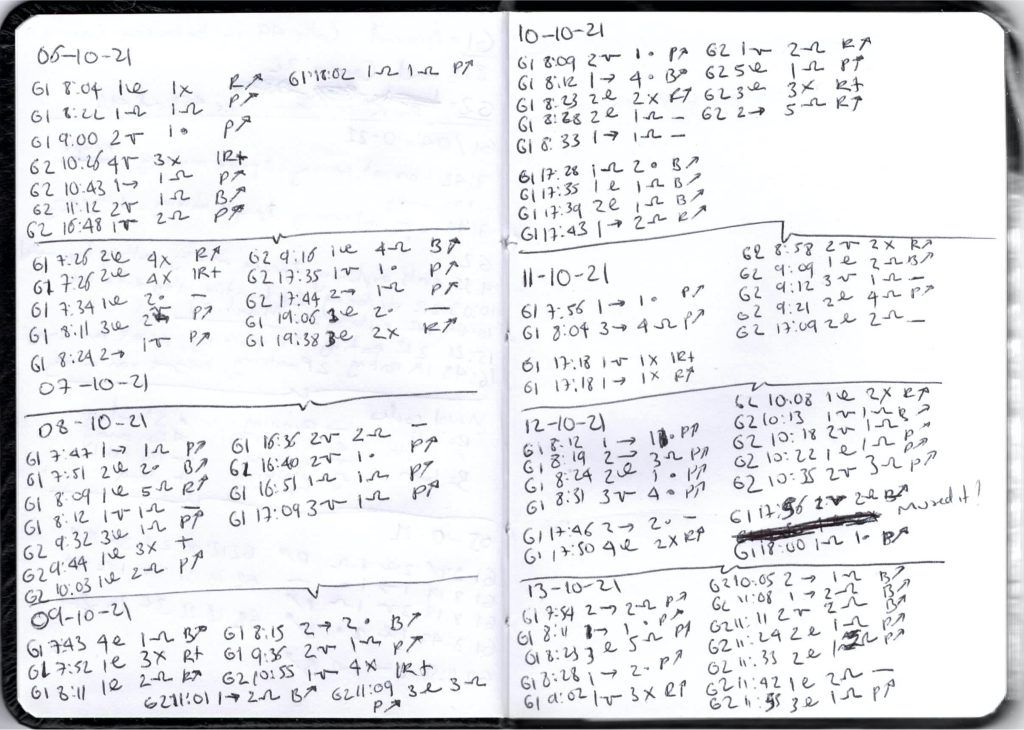 06-10-21
G1 8:04 1e 1x R↗
G1 8:22 1Ω 1Ω P↗
G1 9:00 2v 1• P↗
G2 10:26 4v 3x 1R+
G2 10:43 1→ 1Ω P↗
G2 11:12 2v 1Ω B↗
G2 16:48 1v 2Ω P↗
G1 18:02 1Ω 1Ω P↗
G1 7:26 2e 4x R↗
G2 7:26 2e 4x 1R+
G1 7:34 1e 2• —
G1 8:11 3e P↗
G1 8:24 2→ 1v P↗
07-10-21
G2 9:16 1e 4Ω B↗
G2 17:35 1v 1• P↗
G2 17:44 2→ 1Ω P↗
G1 19:06 3e 2• —
G1 19:38 3e 2x R↗
08-10-21
G1 7:47 1→ 1Ω P↗
G1 7:51 2e 2• B↗
G1 8:09 1e 5Ω R↗
G1 8:12 1v 1Ω —
G2 9:32 3e 1Ω P↗
G2 9:44 1e 3x +
G2 10:03 1e 2Ω P↗
G1 16:36 2v 2Ω —
G2 16:40 2v 1• P↗
G1 16:51 1Ω 1Ω P↗
G1 17:09 3v 1Ω P↗
09-10-21
G1 7:43 4e 1Ω B↗
G1 7:52 1e 3x R+
G1 8:11 1e 2Ω R↗
G1 8:15 2→ 2• B↗
G1 9:36 2v 1Ω P↗
G2 10:55 1v 4x 1R+
G2 11:01 1→ 2Ω B↗
G2 11:09 3e 3Ω
P↗
10-10-21
G1 8:09 2v 1• P↗
G1 8:12 1→ 4• B↗
G1 8:23 2e 2x R↗
G1 8:28 2e 1Ω —
G1 8:33 1→ 1Ω —
G2 1v 2Ω R↗
G2 5e 1Ω P↗
G2 3e 3x R+
G2 2→ 5Ω R↗
G1 17:28 1Ω 2• B↗
G1 17:35 1e 1Ω B↗
G1 17:39 2e 1Ω B↗
G1 17:43 1→ 2Ω R↗
11-10-21
G1 7:56 1→ 1• P↗
G1 8:04 3→ 4Ω P↗
G1 17:18 1v 1x 1R+
G1 17:18 1→ 1x R↗
G2 8:58 2v 2x R↗
G2 9:09 1e 2Ω B↗
G2 9:12 3v 1Ω —
G2 9:21 2e 4Ω P↗
G2 17:09 2e 2Ω —
12-10-21
G1 8:12 1→ 1• P↗
G1 8:19 2→ 3Ω P↗
G1 8:24 2e 1• P↗
G1 8:31 3v 4• P↗
G1 17:46 2→ 2• —
G1 17:50 4e 2x R↗
G2 10:08 1e 2x R↗
G2 10:13 1v 1Ω B↗
G2 10:18 2v 1Ω P↗
G2 10:22 1e 1Ω P↗
G2 10:35 2v 3Ω P↗
G1 17:56 2v 2e B↗
Missed it?
G1 18:00 1Ω 1• B↗
13-10-21
G1 7:54 2→ 2Ω P↗
G1 8:11 1→ 1• P↗
G1 8:23 3e 5Ω P↗
G1 8:28 1→ 2• P↗
G1 9:02 1v 3x R↗
G2 10:05 2→ 1Ω B↗
G2 11:08 1→ 2Ω B↗
G2 11:11 2v 2Ω B↗
G2 11:24 2e 1Ω P↗
G2 11:33 2e P↗
G2 11:42 1e 2Ω —
G2 11:55 3e 1Ω P↗